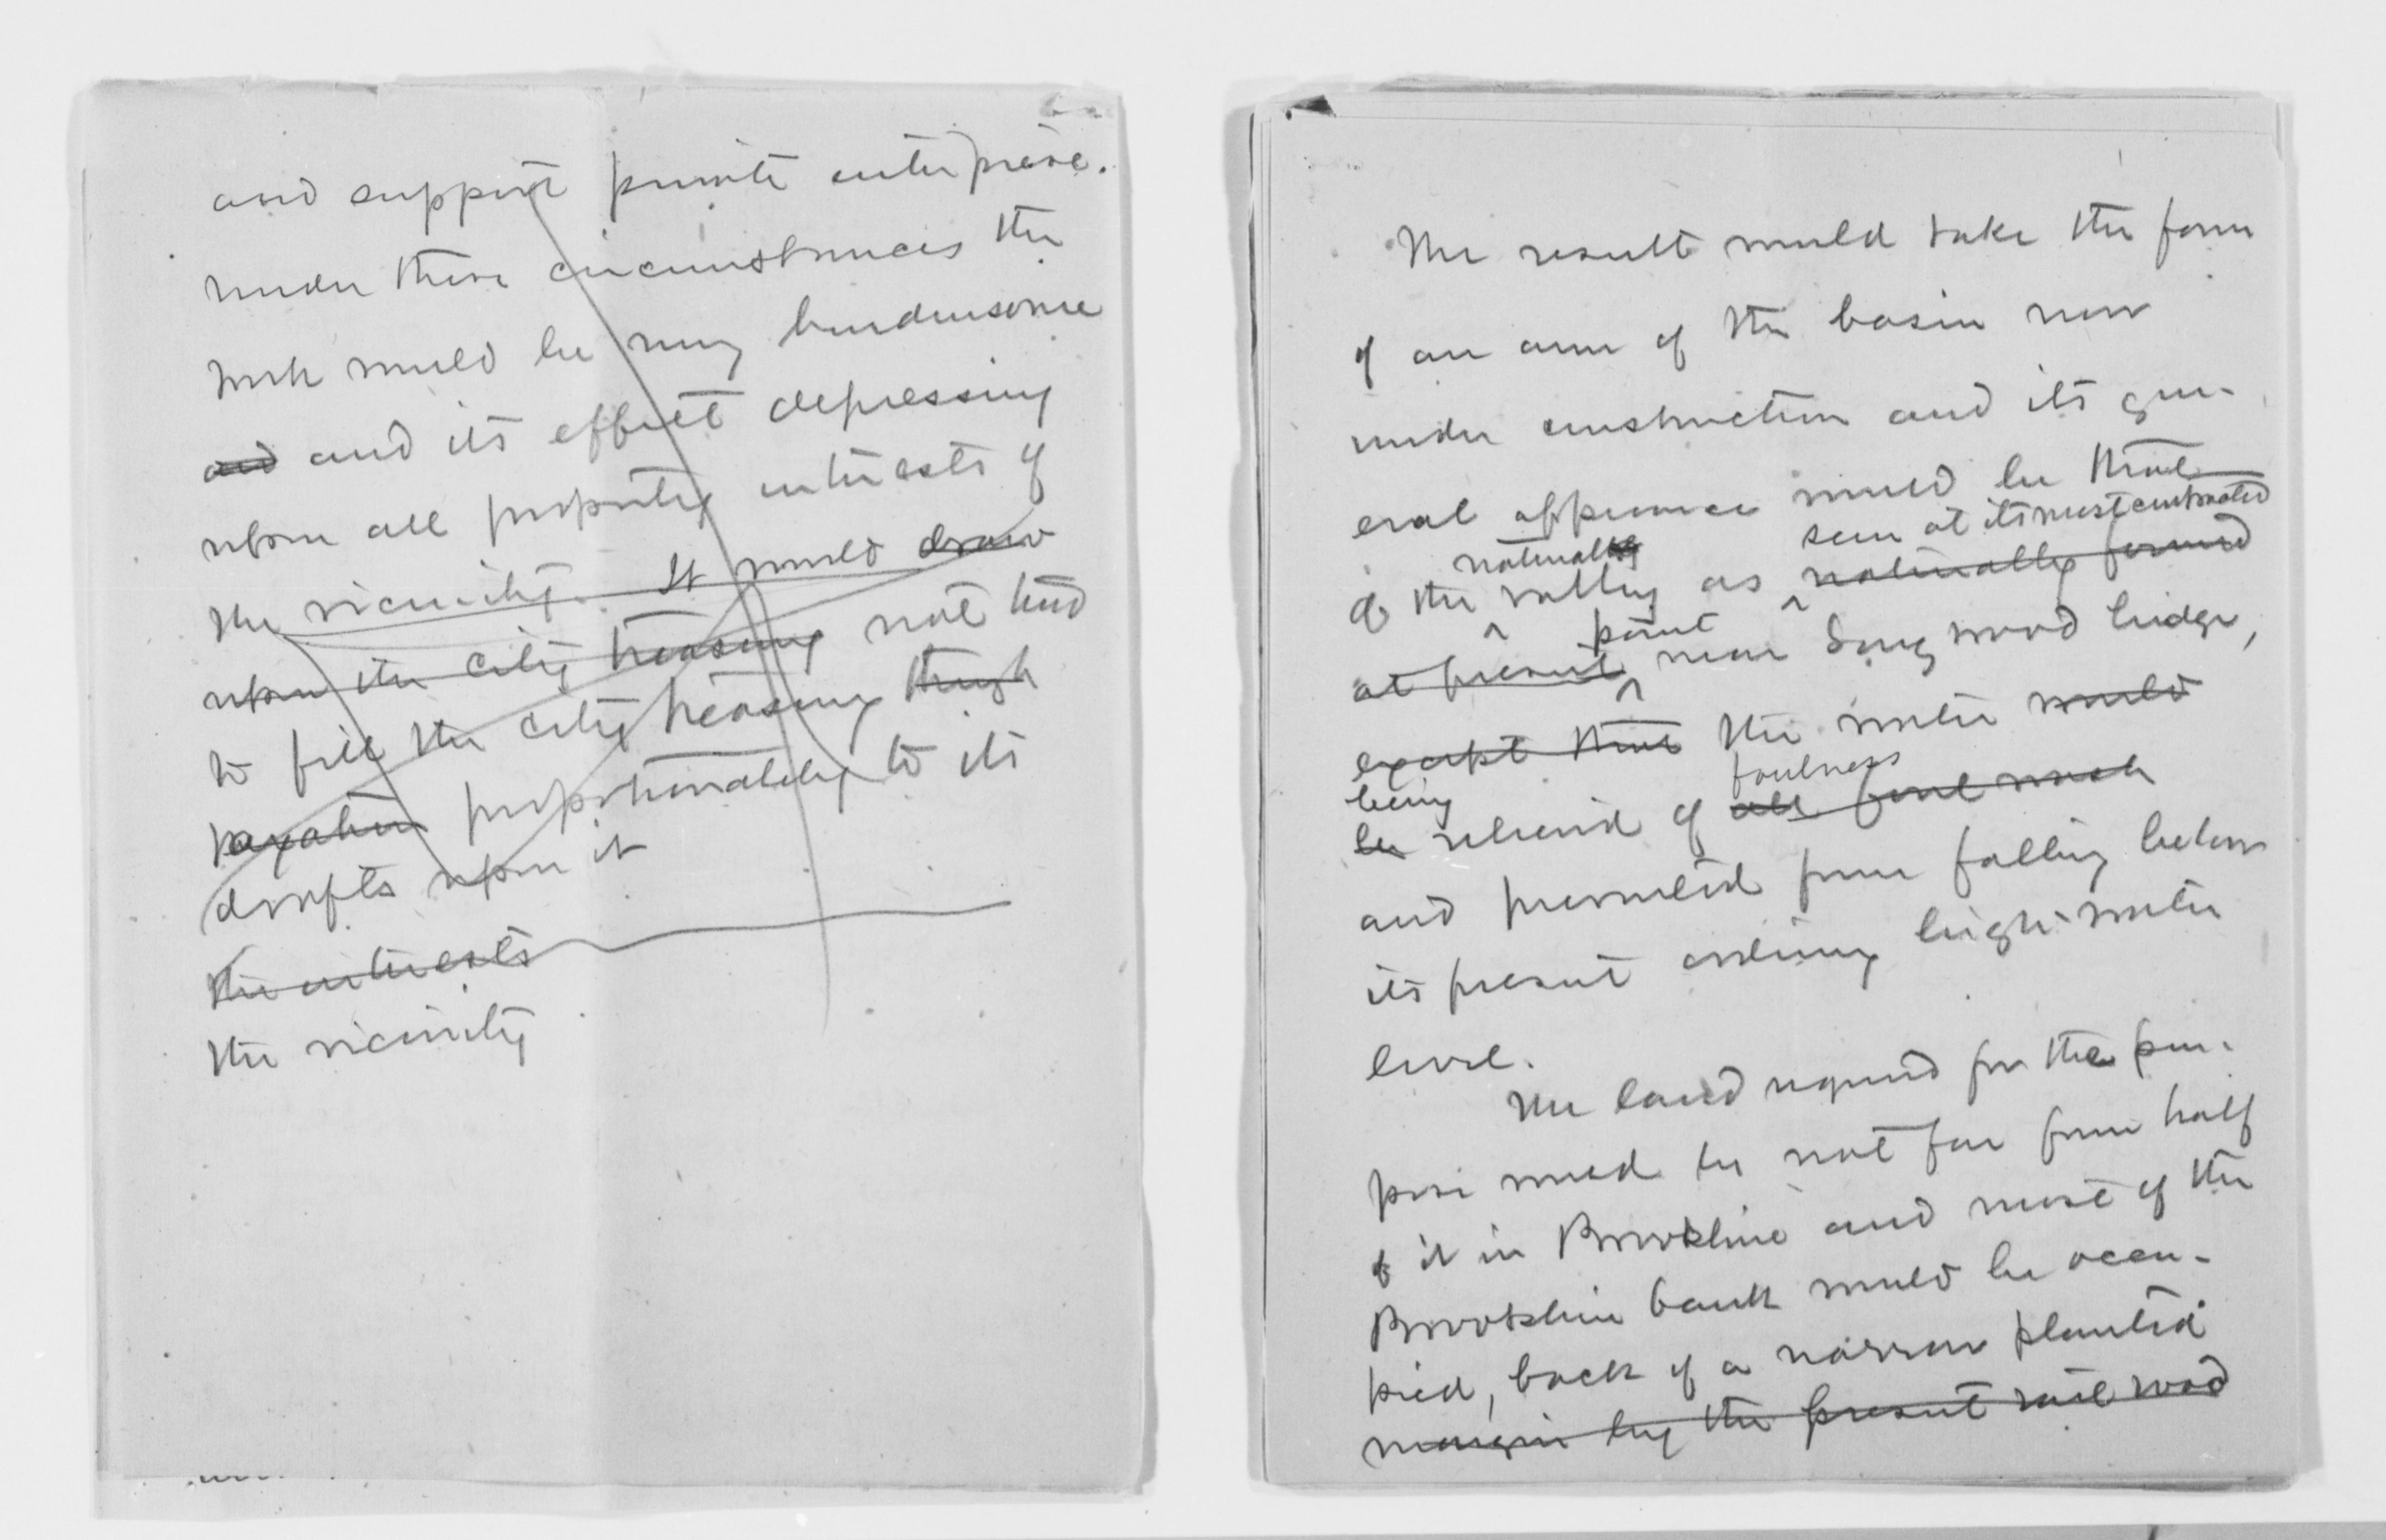 and support private enterprise.
under these circumstances the
work would be very burdensome
and and its effect depressing
upon all property interests of
the vicinity. It would draw
upon the city treasury not tend
to fill the city treasury though
taxation proportionately to its
drafts upon it
the interests
the vicinity
The result would take the form
of an arm of the basin now
under construction and its gen-
eral appearance would be that
seen at its most contracted
naturally
of the valley as naturally formed
point
at present near Longwood bridge,
except that the water would
foulness
being
be relieved of all foul wash
and prevented from falling below
its present ordinary high-water
level.
The land required for the pur-
pose would be not far from half
of it in Brookline and most of the
Brookline bank would be occu-
pied, back of a narrow planted
margin by the present rail road